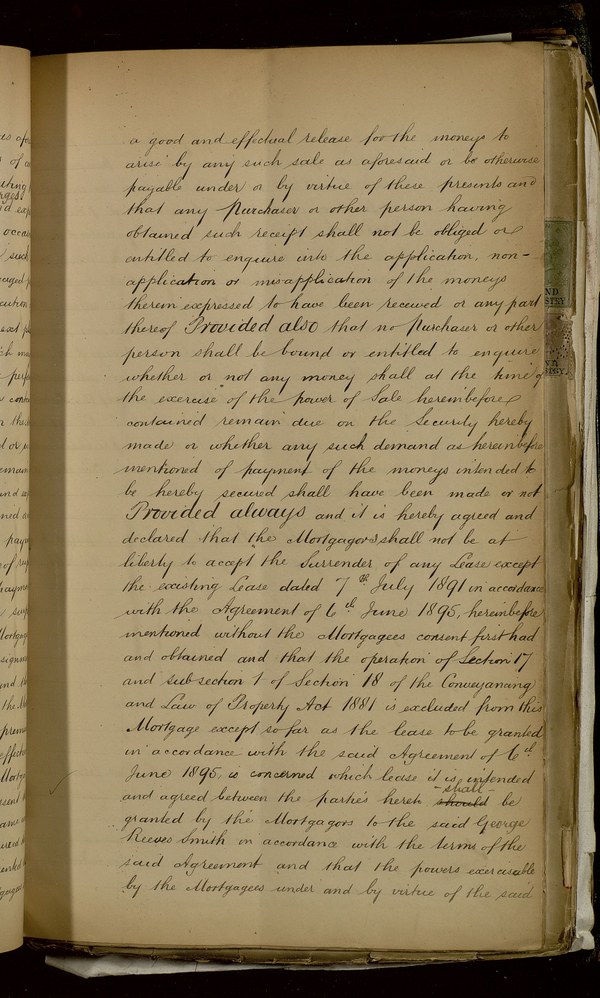 a good and effectual release for the moneys to
arise by any such sale as aforesaid or be otherwise
payable under or by virtue of these presents and
that any Purchaser or other person having
obtained such receipt shall not be obliged or
entitled to enquire into the application, non-
application or misapplication of the moneys
therein expressed to have been received or any part
thereof Provided also that no Purchaser or other
person shall be bound or entitled to enquire
whether or not any money shall at the time of
the exercise of the power of Sale hereinbefore
contained remain due on the Security hereby
made or whether any such demand as hereinbefore
mentioned of payment of the moneys intended to
be hereby secured shall have been made or not
Provided always and it is hereby agreed and
declared that the Mortgagors shall not be at
liberty to accept the Surrender of any Lease except
the existing Lease dated 7th July 1891 in accordance
with the Agreement of 6th June 1895, hereinbefore
mentioned without the Mortgagees consent first had
and obtained and that the operation of Section 17
and subsection 1 of Section 18 of the Conveyancing
and Law of Property Act 1881 is excluded from this
Mortgage except so far as the lease to be granted
in accordance with the said Agreement of 6th
June 1895, is concerned which lease it is intended
and agreed between the parties hereto should shall be
granted by the Mortgagors to the said George
Reeves Smith in accordance with the terms of the
said Agreement and that the powers exercisable
by the Mortgagees under and by virtue of the said